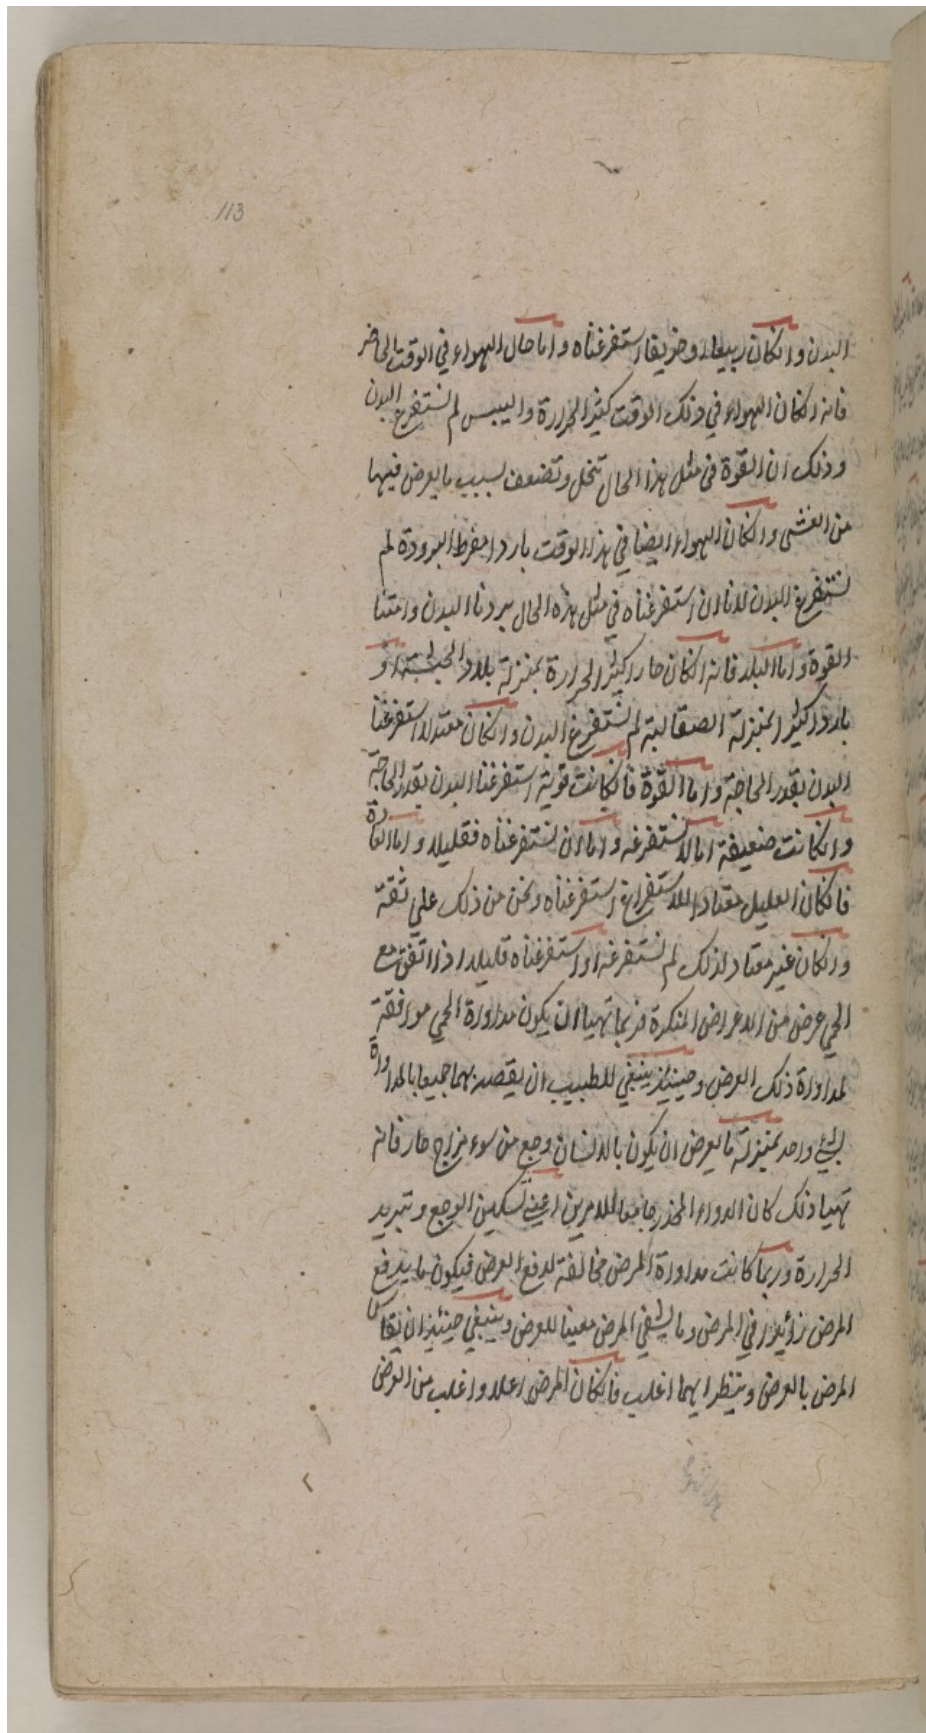 113
البدن وانكان ربيعا او خريفا استفرغناه واما حال الهواء في الوقت الحاضر
فانه انكان الهواء في ذلك الوقت كثير الحرارة واليبس لم نستفرغ البدن
وذلك ان القوة في مثل هذا الحال تنحل وتضعف بسبب ما يعرض فيها
من الغشي وانكان الهواء ايضا في هذا الوقت باردا مفرط البرودة لم
نستفرغ البدن لانا ان استفرغناه في مثل هذه الحال بردنا البدن وامتنا
القوة واما البلد فانه انكان حارا كثير الحرارة بمنزلة بلاد الحبشة او
باردا كثيرا بمنزلة الصقالبة لم نستفرغ البدن وانكان معتدلا استفرغنا
البدن بقدر الحاجة واما القوة فانكانت قوية استفرغنا البدن بقدر الحاجة
وانكانت ضعيفة اما لا نستفرغه واما ان نستفرغناه فقليلا واما العادة
فانكان العليل معتادا للاستفراغ استفرغناه ونحن من ذلك على ثقة
وانكان غير معتاد لذلك لم نستفرغه او استفرغناه قليلا اذا اتفق مع
الحمي عرض من الاعراض المنكرة فربما تهيا ان يكون مداواة الحمي موافقة
لمداواة ذلك العرض وحينئذ ينبغي للطبيب ان يقصد بهما جميعا بالمداواة
بشيء واحد بمنزلة ما يعرض ان يكون بالانسان وجع من سوء مزاج حار فانه
تهيا ذلك كان الدواء المخدر جامعا للامرين اعني تسكين الوجع وتبريد
الحرارة وربما كانت مداواة المرض مخالفة لدفع العرض فيكون ما يدفع
المرض زائدا في المرض وما يشفي المرض معينا للعرض وينبغي حينئذ ان يقاس
المرض بالعرض وينظر ايهما اغلب فانكان المرض اعلا واغلب من العرض